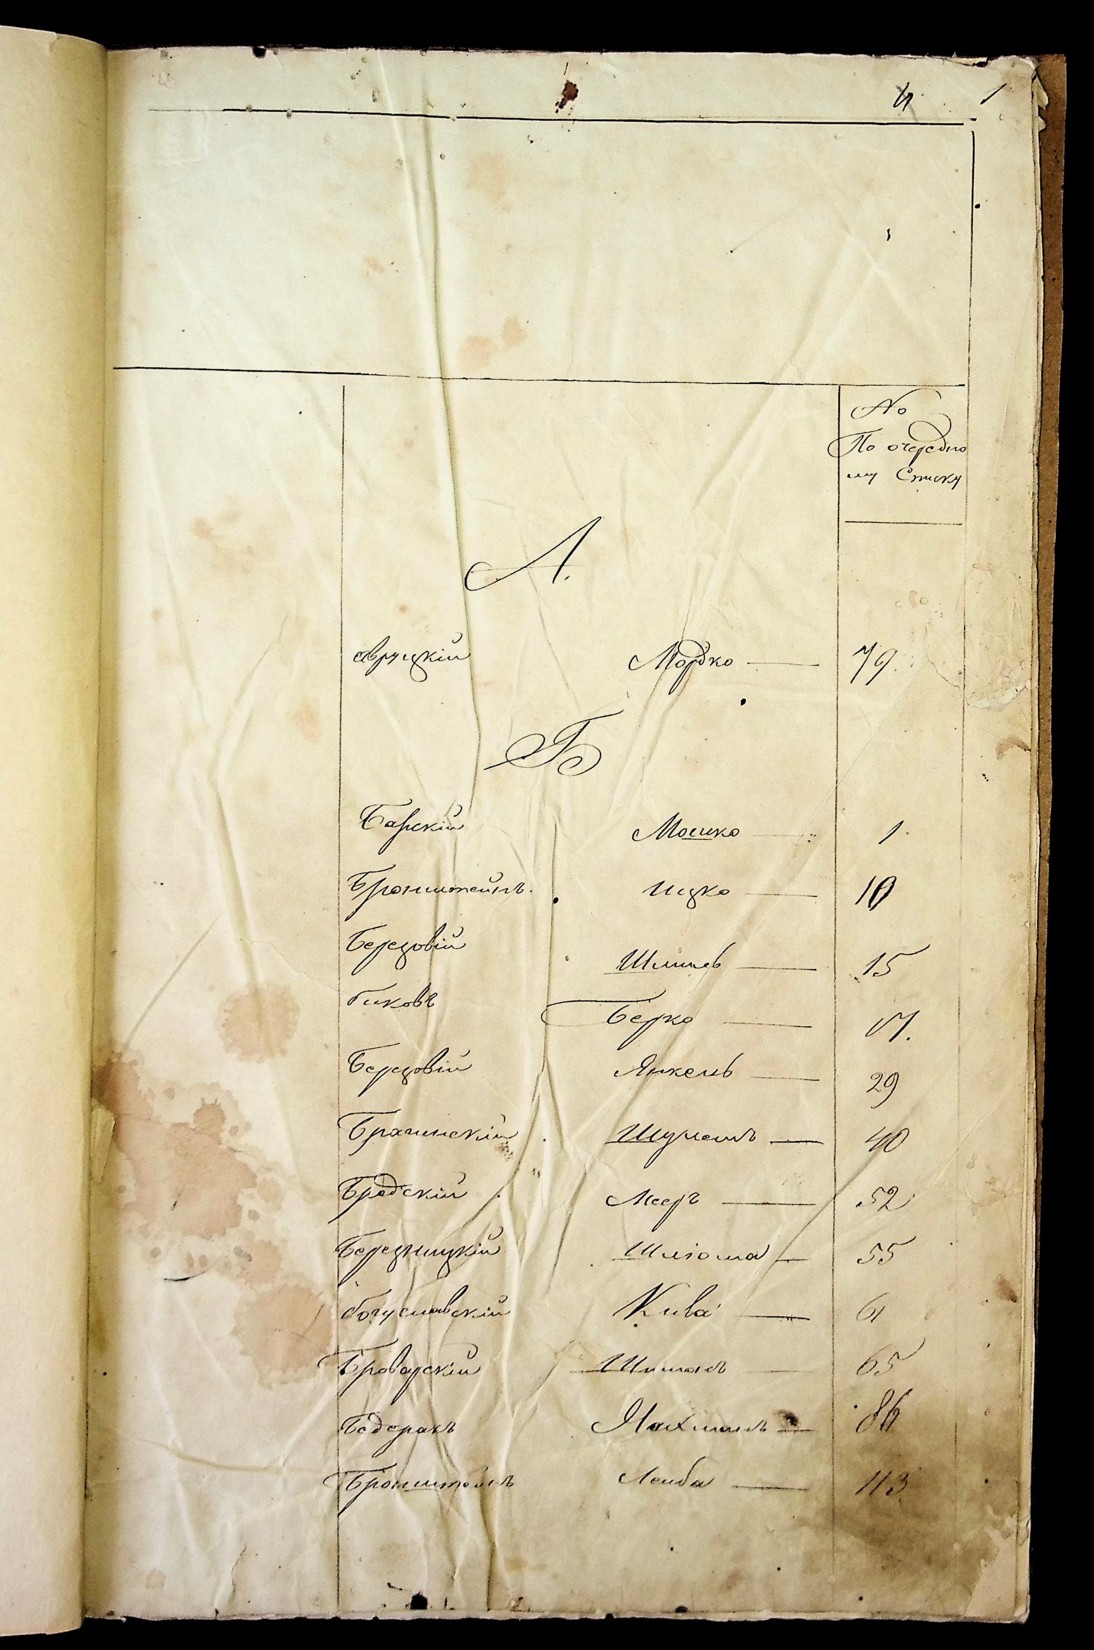 4 1
№
По очередно
му Списку
А.
Авруцкій Мордко 79.
Б
Барскій Мошко 1.
Бронштейнъ. Ицко 10
Березовій Шмиль 15
Биковъ Берко 17.
Березовій Янкель 29
Брагинскій 40
Бродскій Мееръ 52
Березницкій Шліома 55
Богуславскій Кива 61
Броварскій Шимонъ 65
Бедеракъ Нахманъ 86
Бронштейнъ Лейба 113